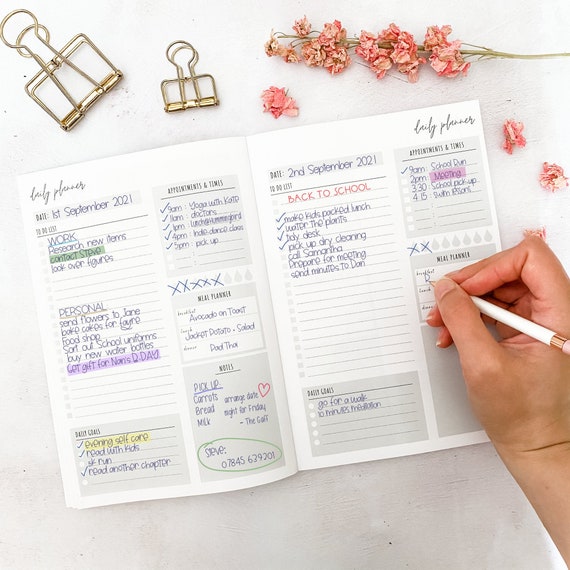 daily planner
DATE: 1st September 2021
TO DO LIST
WORK
Research new items
contact Steve
look over figures
PERSONAL
send flowers to Jane
bake cakes for fayre
Food shop
Sort out School uniforms
buy new water bottles
Get gift for Nan's B.DAY
DAILY GOALS
evening self care
read with kids
5k run
read another chapter
APPOINTMENTS & TIMES
9am Yoga with Kate
11am doctors
1pm lunch@Hummingbird
4pm indie dance class
5pm pick up
MEAL PLANNER
breakfast
Avocado on Toast
lunch
Jacket Potato + Salad
dinner
Pad Thai
NOTES
PICK UP:
Carrots
Bread
Milk
arrange date
night for Friday
- The Gaff
Steve:
07845 639201
daily planner
DATE: 2nd September 2021
TO DO LIST
BACK TO SCHOOL
make kids packed lunch
water the plants
tidy desk
pick up dry cleaning
call Samantha
Prepare for meeting
send minutes to Dan
DAILY GOALS
go for a walk
10 minutes meditation
APPOINTMENTS & TIMES
9am School Run
2pm Meeting
3.30 School pick up
4.15 Swim lessons
MEAL
breakfast
lunch